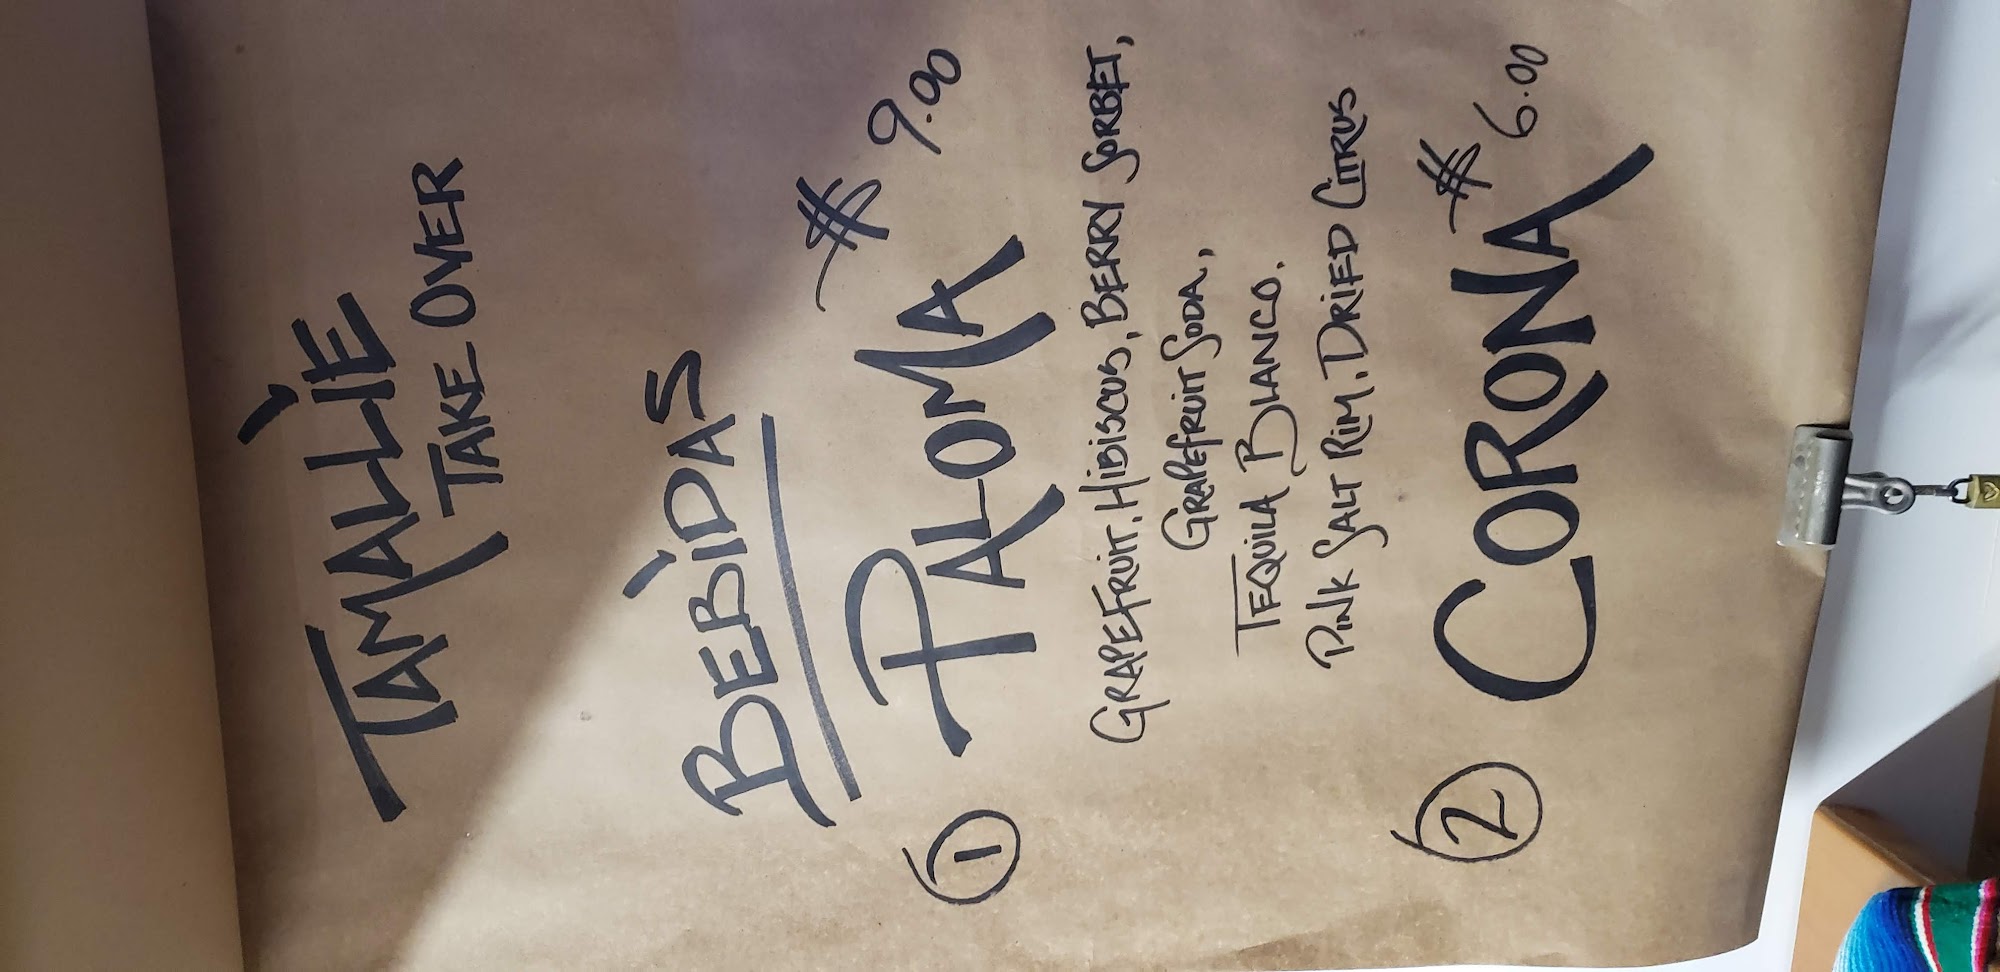 TAMALLIÉ
TAKE OVER
BEBÍDAS
① PALOMA $ 9.00
GRAPEFRUIT, HIBISCUS, BERRY SORBET,
GRAPEFRUIT SODA,
TEQUILA BLANCO.
PINK SALT RIM. DRIED CITRUS
② CORONA $ 6.00